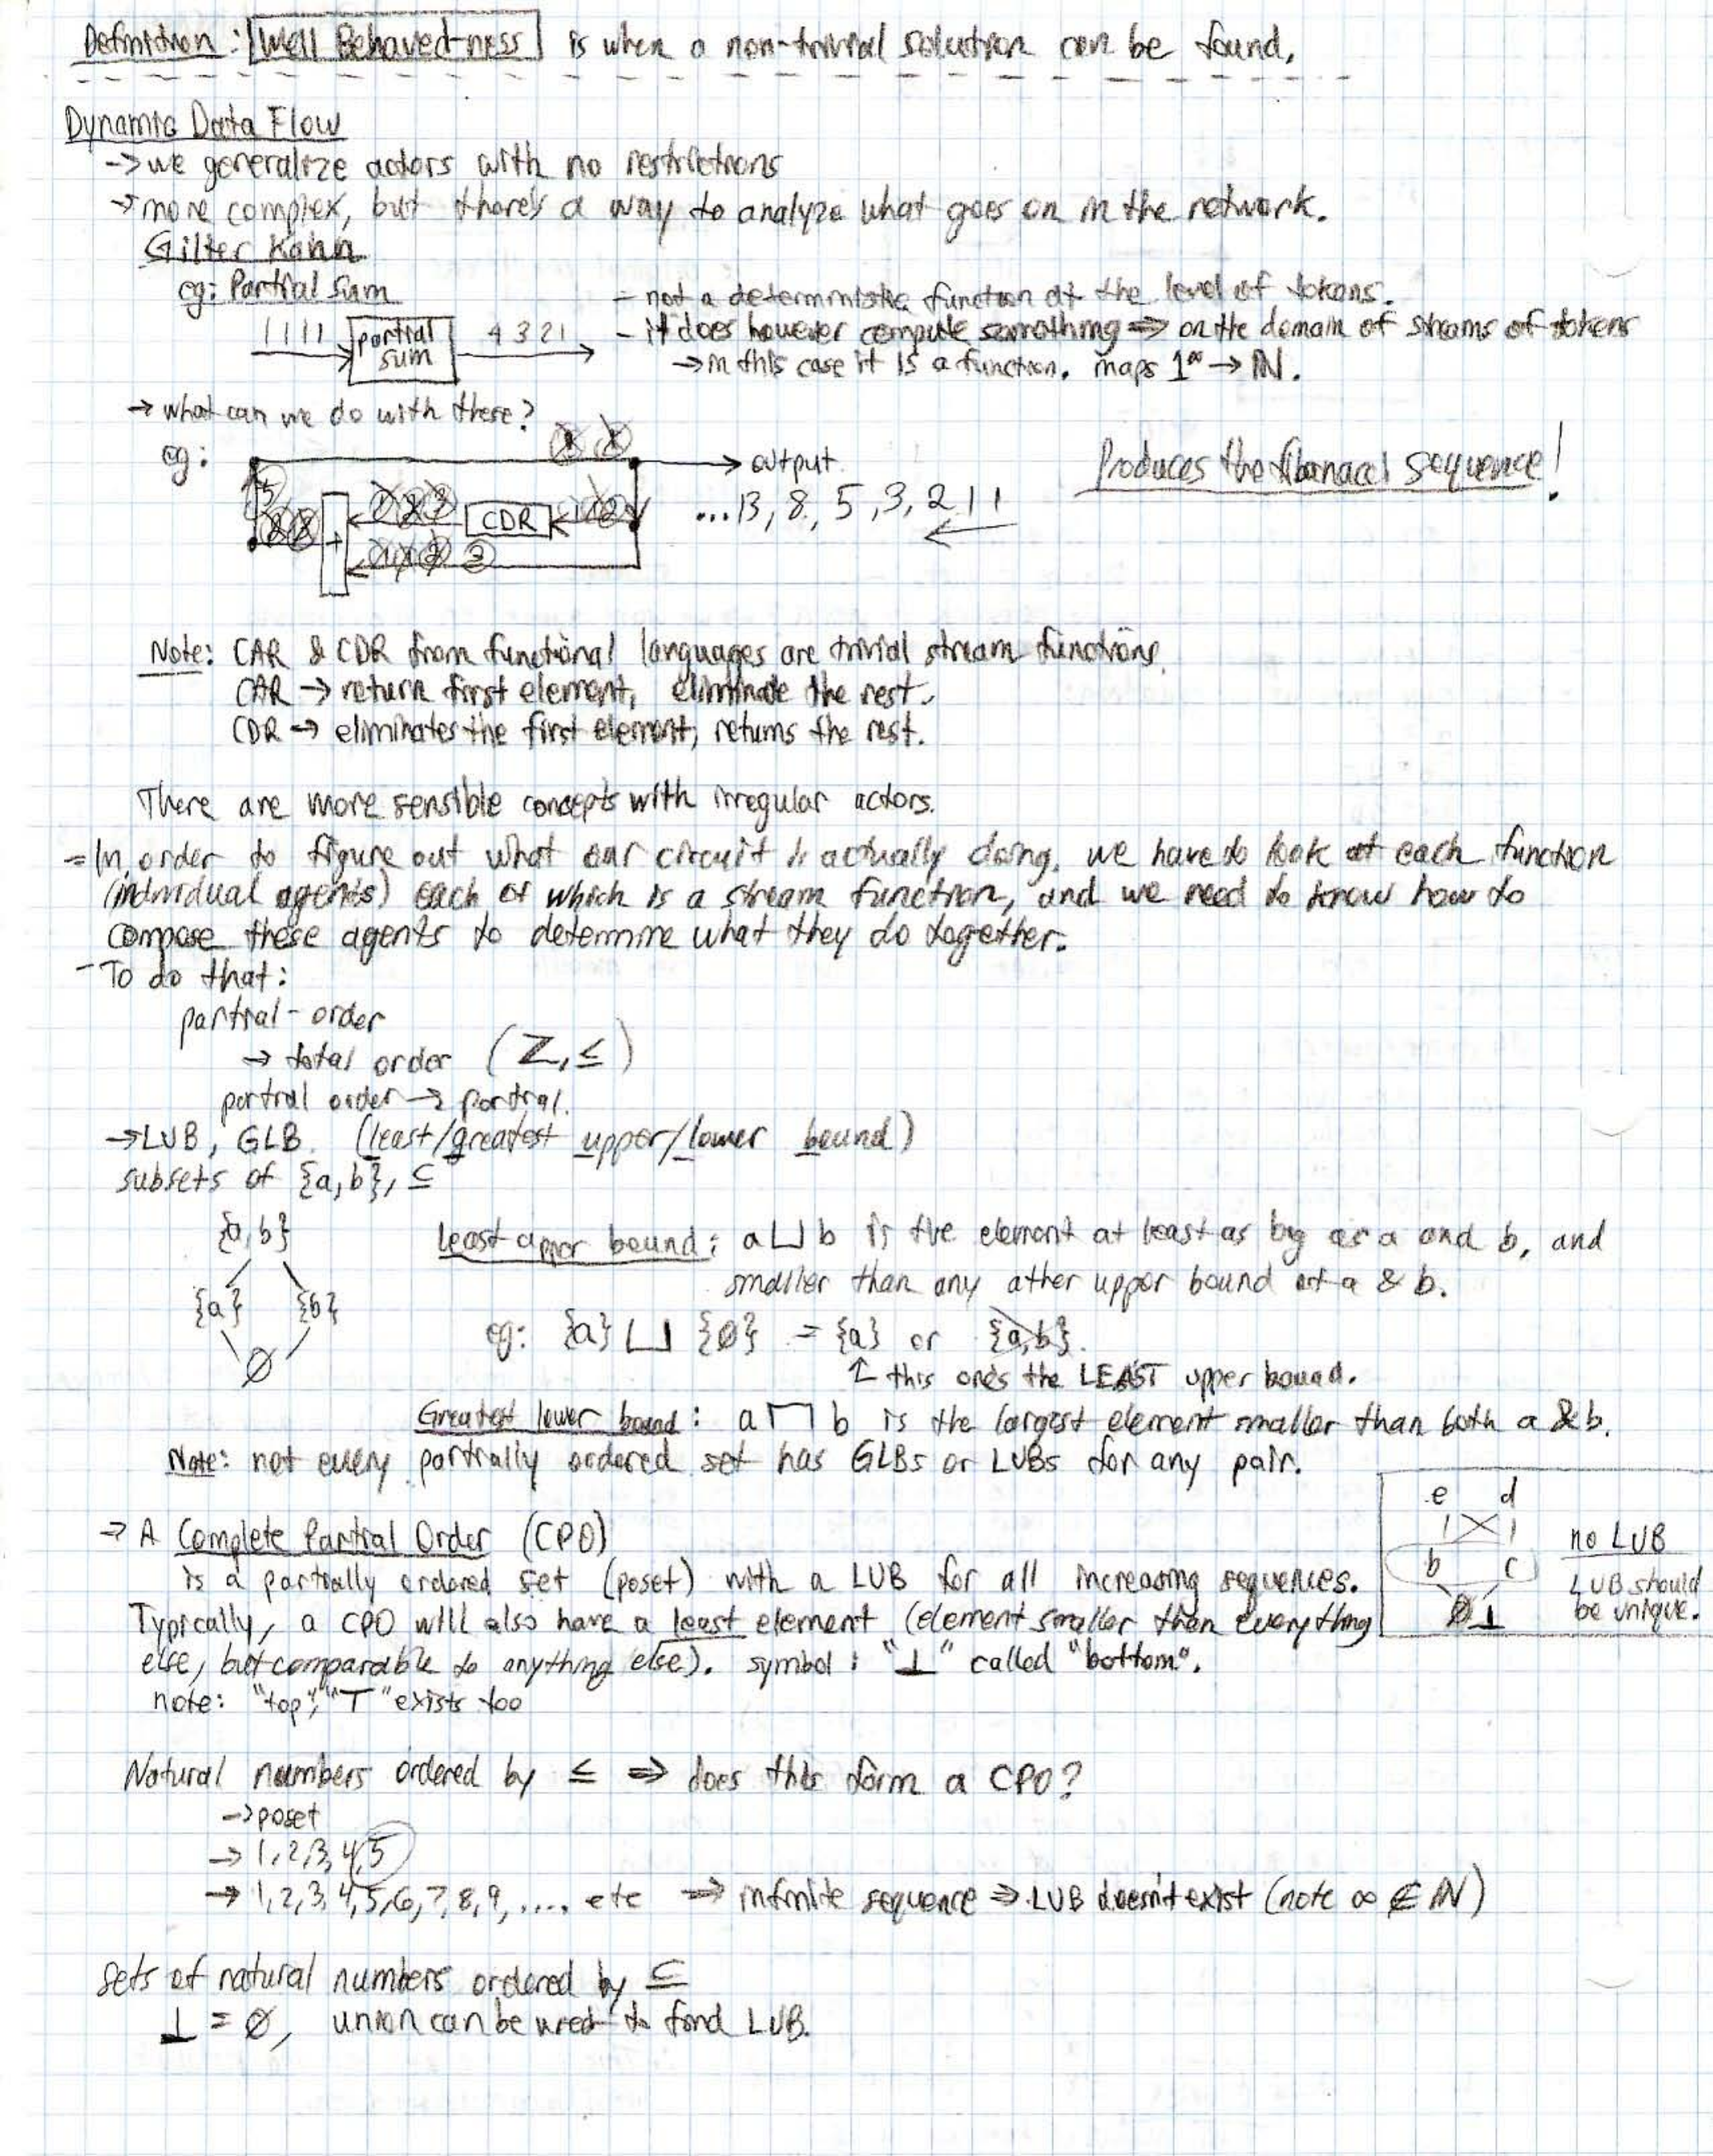 Definition: Well Behaved-ness is when a non-trivial solution can be found.
Dynamic Data Flow
→ we generalize actors with no restrictions
→ more complex, but there's a way to analyze what goes on in the network.
Gilter Kahn
eg: Partial Sum
1 1 1 1 partial sum 4 3 2 1
- not a deterministic function at the level of tokens.
- it does however compute something ⇒ on the domain of streams of tokens
→ in this case it IS a function. maps 1^∞ → ℕ.
→ what can we do with these?
eg:
CDR
+
→ output
...13, 8, 5, 3, 2 1 1
Produces the fibonacci sequence!
Note: CAR & CDR from functional languages are trivial stream functions.
CAR → return first element, eliminate the rest.
CDR → eliminates the first element, returns the rest.
There are more sensible concepts with irregular actors.
- In order to figure out what our circuit is actually doing, we have to look at each function
(individual agents) each of which is a stream function, and we need to know how to
compose these agents to determine what they do together.
- To do that:
partial-order
→ total order (ℤ, ≤)
partial order → partial.
→ LUB, GLB. (least/greatest upper/lower bound)
subsets of {a,b}, ⊆
{a,b}
{a} {b}
∅
Least upper bound: a ⊔ b is the element at least as big as a and b, and
smaller than any other upper bound of a & b.
eg: {a} ⊔ {∅} = {a} or {a,b}.
↑ this one's the LEAST upper bound.
Greatest lower bound: a ⊓ b is the largest element smaller than both a & b.
Note: not every partially ordered set has GLBs or LUBs for any pair.
e d
b c
⊥
no LUB
LUB should
be unique.
→ A Complete Partial Order (CPO)
is a partially ordered set (poset) with a LUB for all increasing sequences.
Typically, a CPO will also have a least element (element smaller than everything
else, but comparable to anything else). symbol: "⊥" called "bottom".
note: "top", "⊤" exists too
Natural numbers ordered by ≤ ⇒ does this form a CPO?
→ poset
→ 1,2,3,4,5
→ 1,2,3,4,5,6,7,8,9,.... etc ⇒ infinite sequence ⇒ LUB doesn't exist (note ∞ ∉ ℕ)
sets of natural numbers ordered by ⊆
⊥ = ∅, union can be used to find LUB.